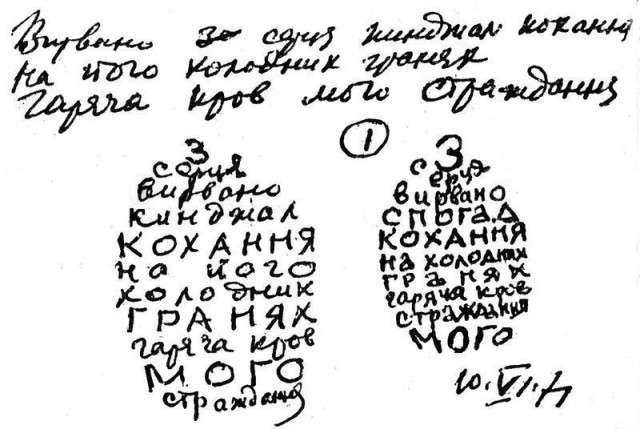 Вирвано з серця кинджал кохання
на його холодних гранях
Гаряча кров мого страждання
1
З
серця
вирвано
кинджал
КОХАННЯ
на його
холодних
ГРАНЯХ
гаряча кров
МОГО
страждання
З
серця
вирвано
СПОГАД
КОХАННЯ
на холодних
гранях
гаряча кров
страждання
МОГО
10.VI.